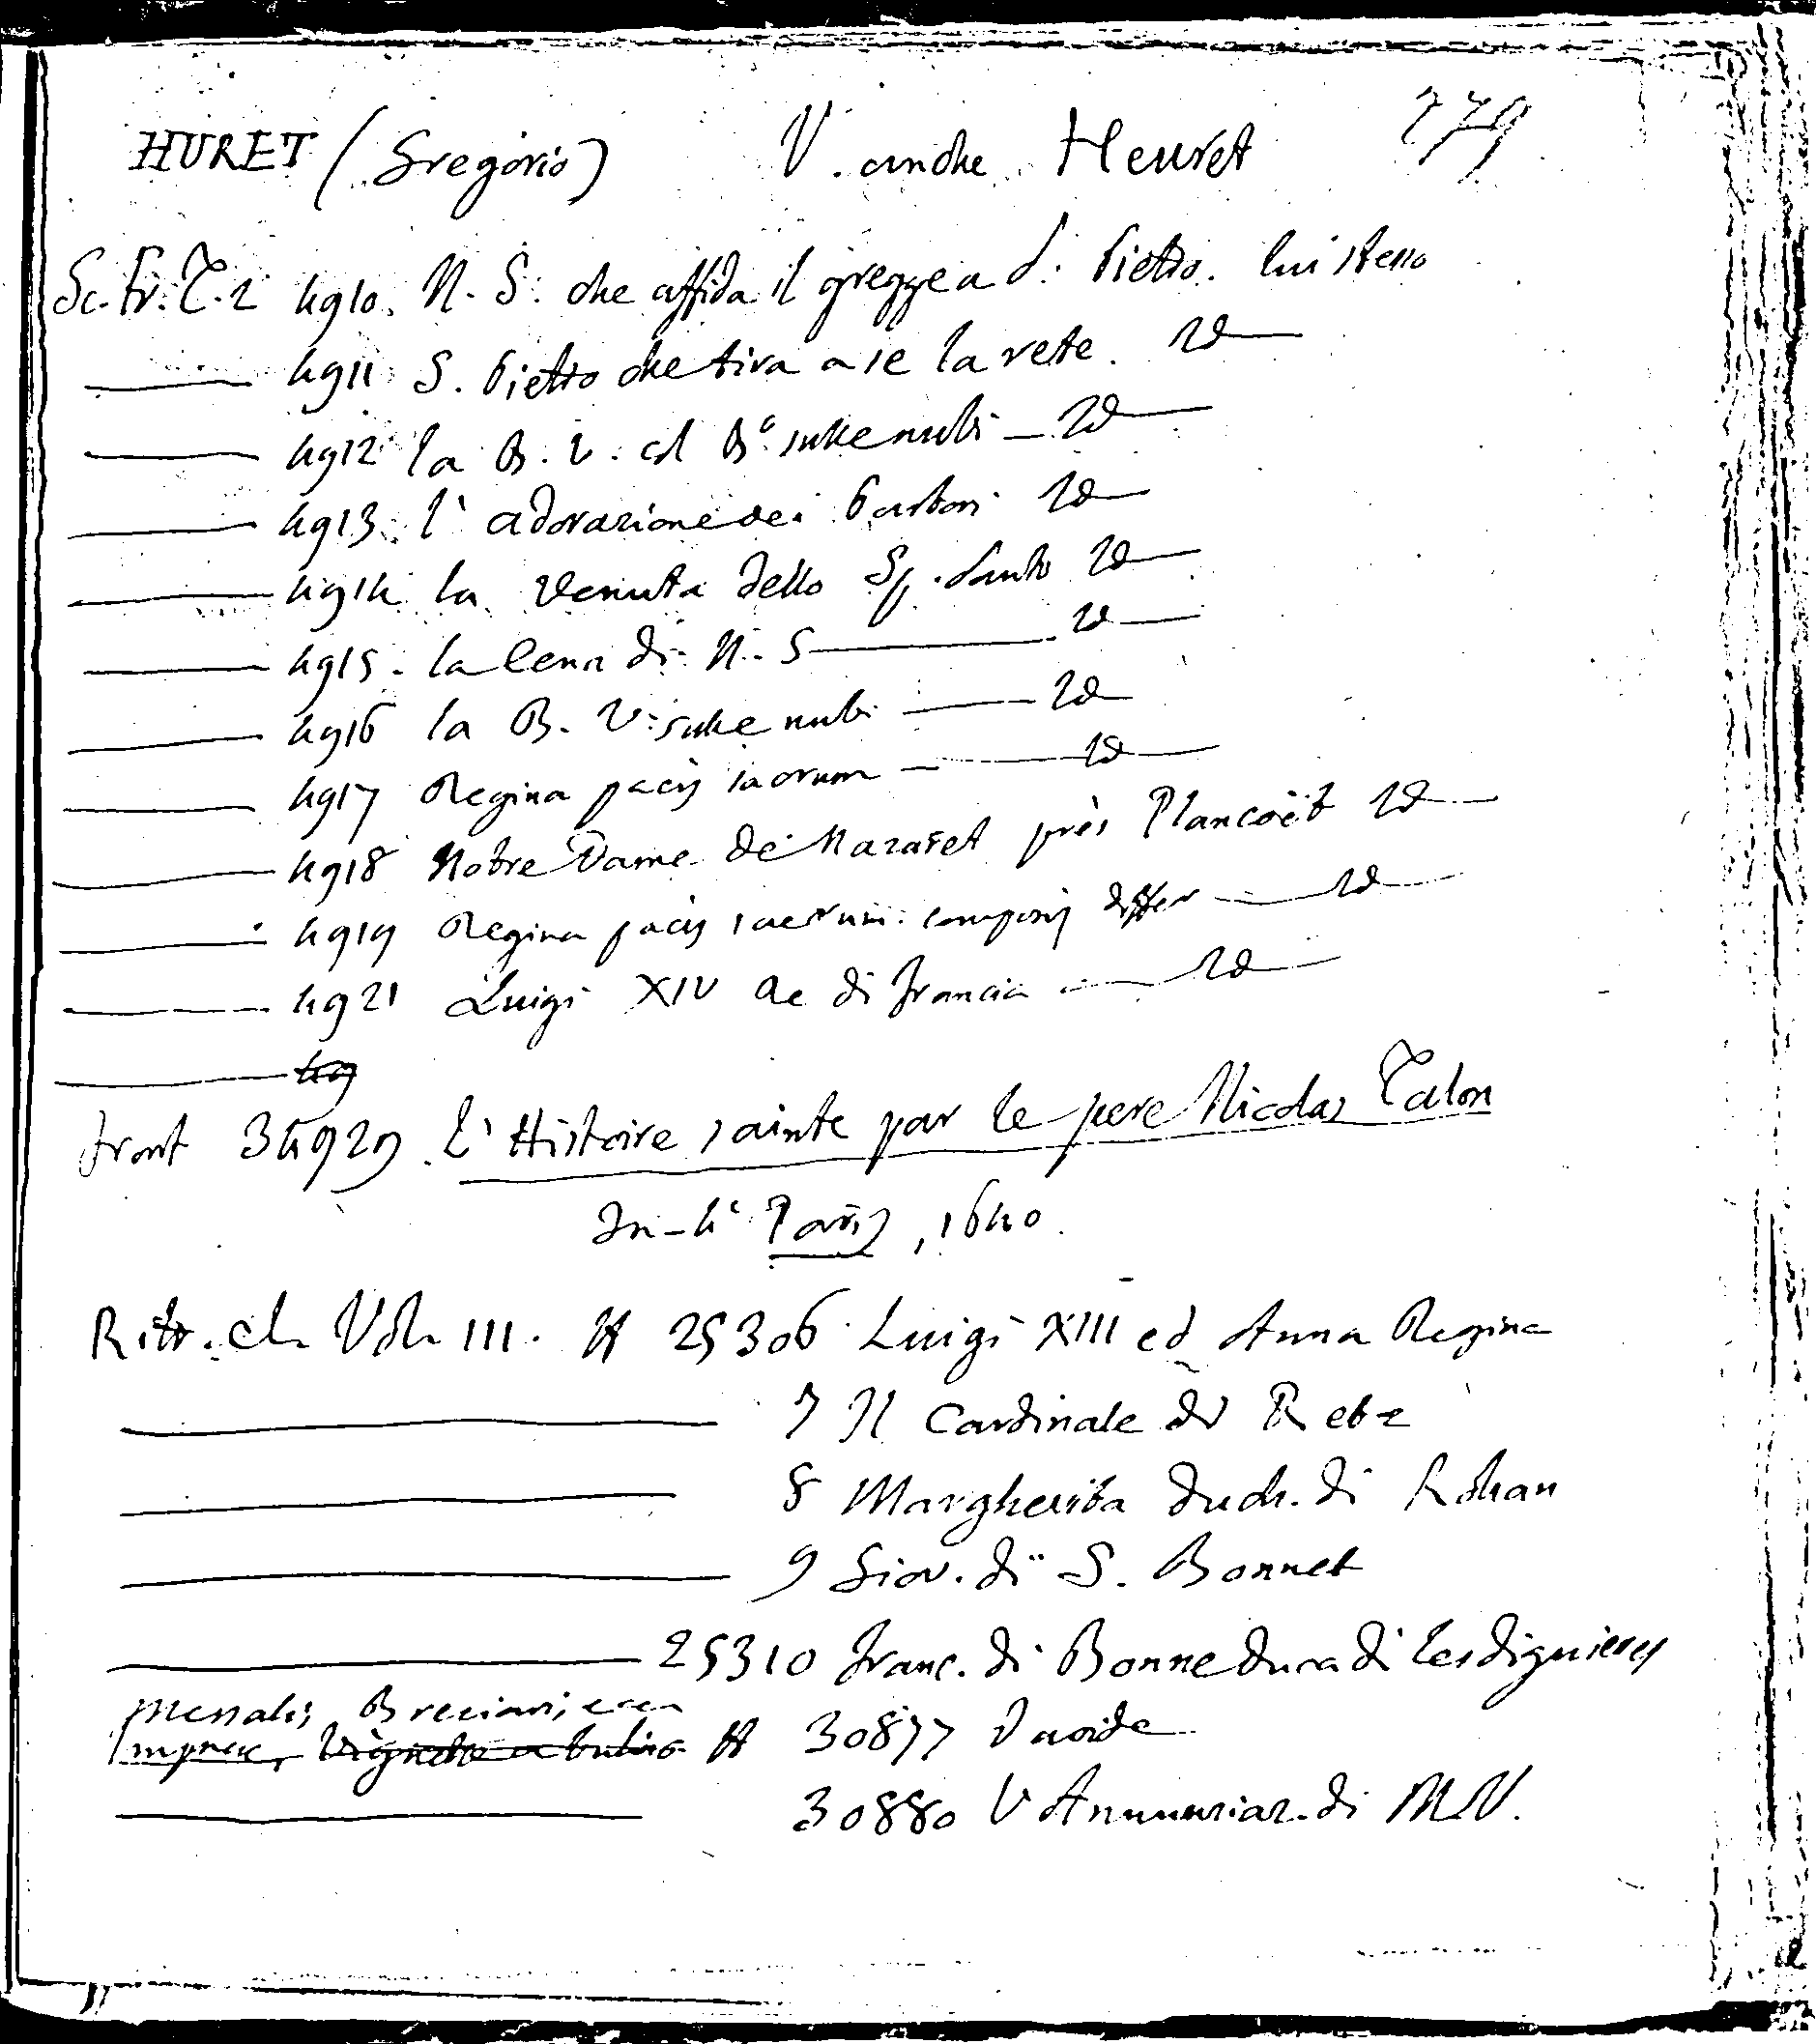 HURET (Gregorio) V. anche Heuret 279
Sc. Fr. T. 2 4910. N. S. che affida il gregge a S. Pietro. lui stesso
——— 4911 S. Pietro che tira a se la rete. Id——
——— 4912 la B. V. col Bº. sulle nubi — Id——
——— 4913. l'adorazione dei Pastori Id—
——— 4914 la venuta dello Sp. Santo Id——
——— 4915. la Cena di N. S ——— Id——
——— 4916 la B. V. sulle nubi —— Id—
——— 4917 Regina pacis sacrum — —— Id——
——— 4918 Notre Dame de Nazaret près Plancoët Id——
——— 4919 Regina pacis sacrum. composiz differ —— Id——
——— 4921 Luigi XIV Re di Francia —— Id——
——— 49
front 34929. L'Histoire sainte par le pere Nicolas Talon
In-4º Paris, 1640.
Ritr. cl. Vol. III. H 25306. Luigi XIII ed Anna Regina
——— 7 Il Cardinale di Retz
——— 8 Margherita duch. di Rohan
——— 9 Giov. di S. Bonnet
——— 25310 Franc. di Bonne duca di Lesdiguieres
Messali, Breviari, ecc
H 30877 Davide
——— 30880 L'Annunziaz. di M.V.